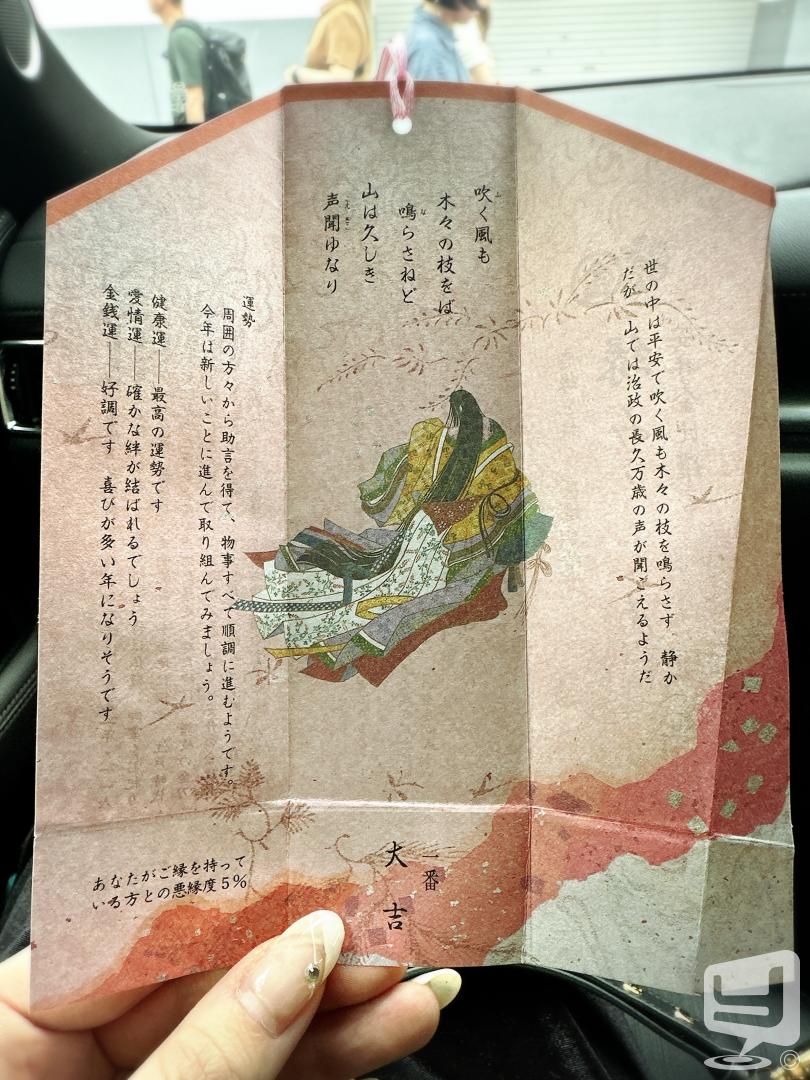 世の中は平安で吹く風も木々の枝を鳴らさず　静か
だが　山では治政の長久万歳の声が聞こえるようだ
吹く風も
木々の枝をば
鳴らさねど
山は久しき
声聞ゆなり
運勢
周囲の方々から助言を得て、物事すべて順調に進むようです。
今年は新しいことに進んで取り組んでみましょう。
健康運――最高の運勢です
愛情運――確かな絆が結ばれるでしょう
金銭運――好調です　喜びが多い年になりそうです
一番
大吉
あなたがご縁を持って
いる方との悪縁度5%